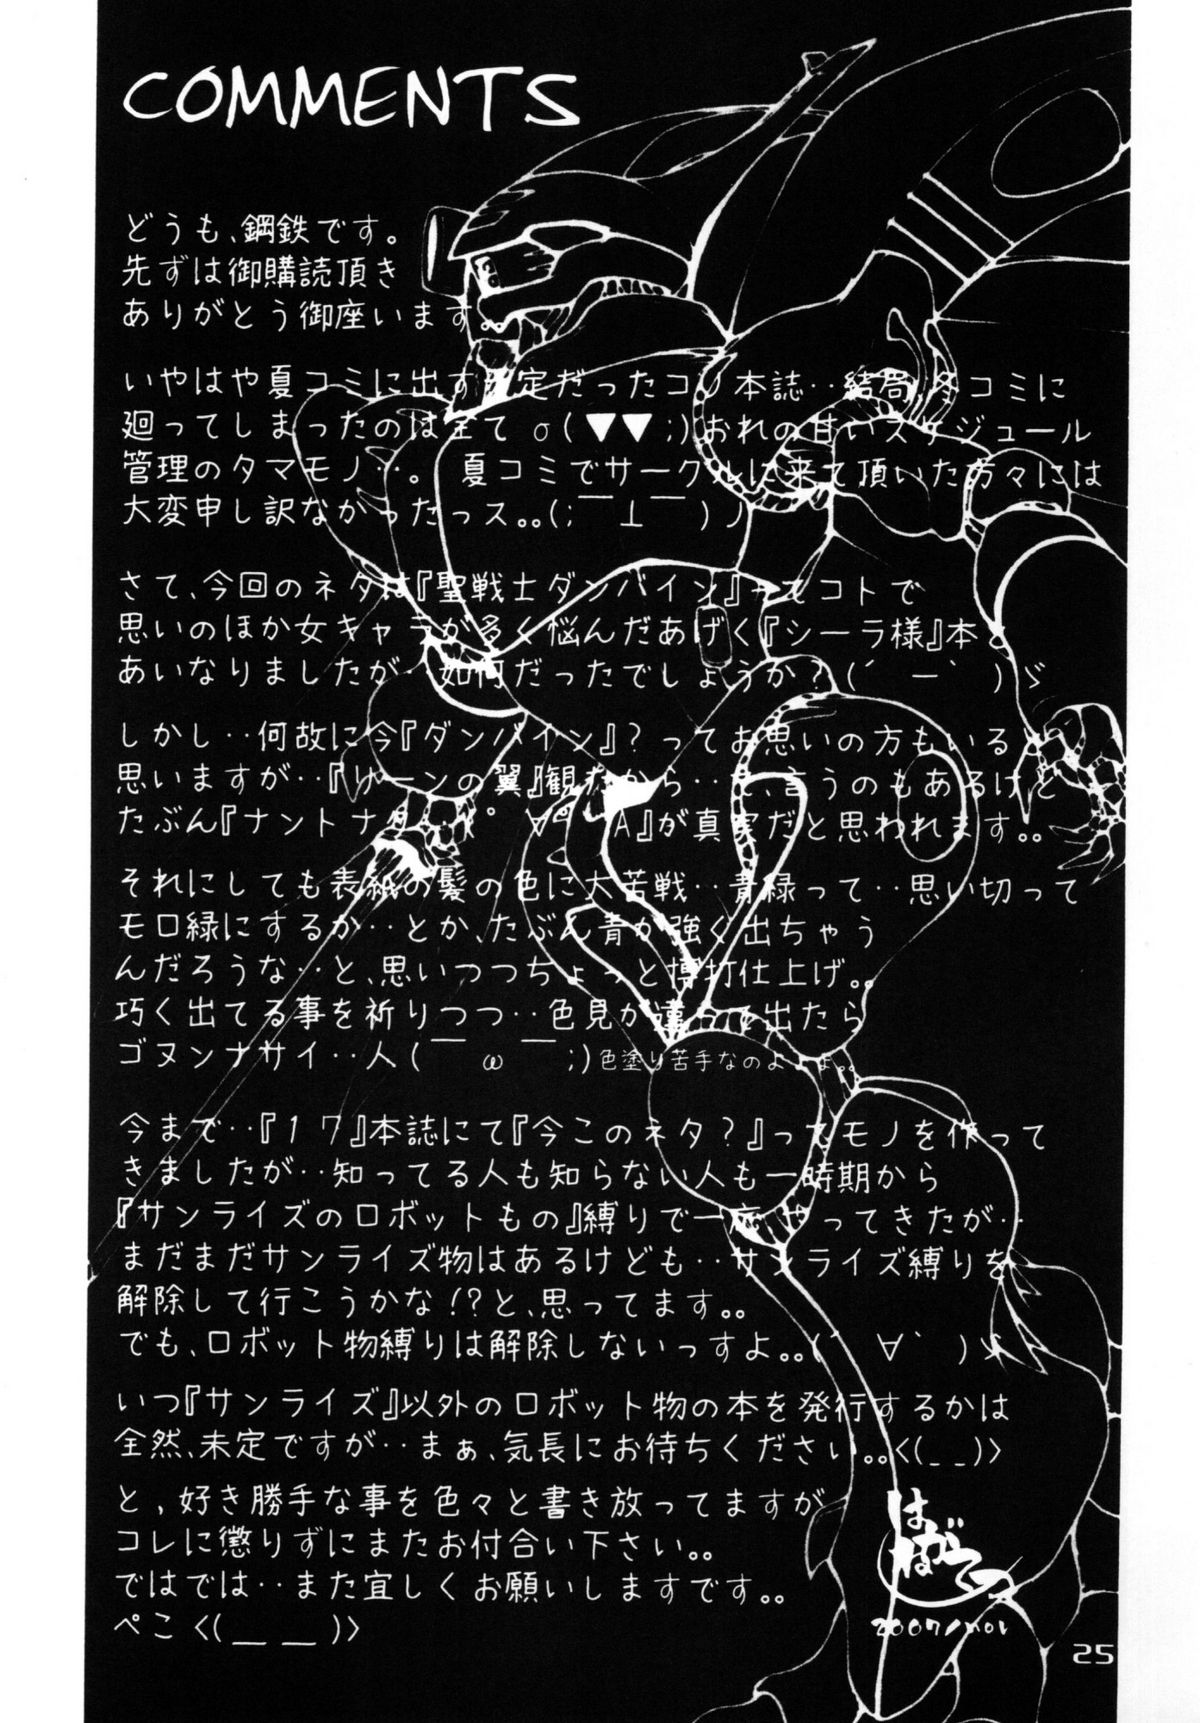 COMMENTS
どうも、鋼鉄です。
先ずは御購読頂き
ありがとう御座います。
いやはや夏コミに出す予定だったコノ本誌‥結局、冬コミに
廻ってしまったのは全てσ(▼▼;)おれの甘いスケジュール
管理のタマモノ‥。 夏コミでサークルに来て頂いた方々には
大変申し訳なかったっス。。(;￣⊥￣)ノ
さて、今回のネタは『聖戦士ダンバイン』ってコトで
思いのほか女キャラが多く悩んだあげく『シーラ様』本
あいなりましたが‥如何だったでしょうか?(´ー`)ゞ
しかし‥何故に今『ダンバイン』?ってお思いの方もいる
思いますが‥『リーンの翼』観たから‥と、言うのもあるけど
たぶん『ナントナク 』が真実だと思われます。。
それにしても表紙の髪の色に大苦戦‥青緑って‥思い切って
モロ緑にするか‥とか、たぶん青が強く出ちゃう
んだろうな‥と、思いつつちょっと博打仕上げ。。
巧く出てる事を祈りつつ‥色見が違って出たら
ゴヌンナサイ‥人(￣ω￣;)色塗り苦手なのよねぇ。。
今まで‥『17』本誌にて『今このネタ?』ってモノを作って
きましたが‥知ってる人も知らない人も一時期から
『サンライズのロボットもの』縛りで一応やってきたが‥
まだまだサンライズ物はあるけども‥サンライズ縛りを
解除して行こうかな!?と、思ってます。。
でも、ロボット物縛りは解除しないっすよ。。(´∀`)ゞ
いつ『サンライズ』以外のロボット物の本を発行するかは
全然、未定ですが‥まぁ、気長にお待ちください。。<(_ _)>
と,好き勝手な事を色々と書き放ってますが
コレに懲りずにまたお付合い下さい。。
ではでは‥また宜しくお願いしますです。。
ぺこ<(＿ ＿)>
2007/nov
25